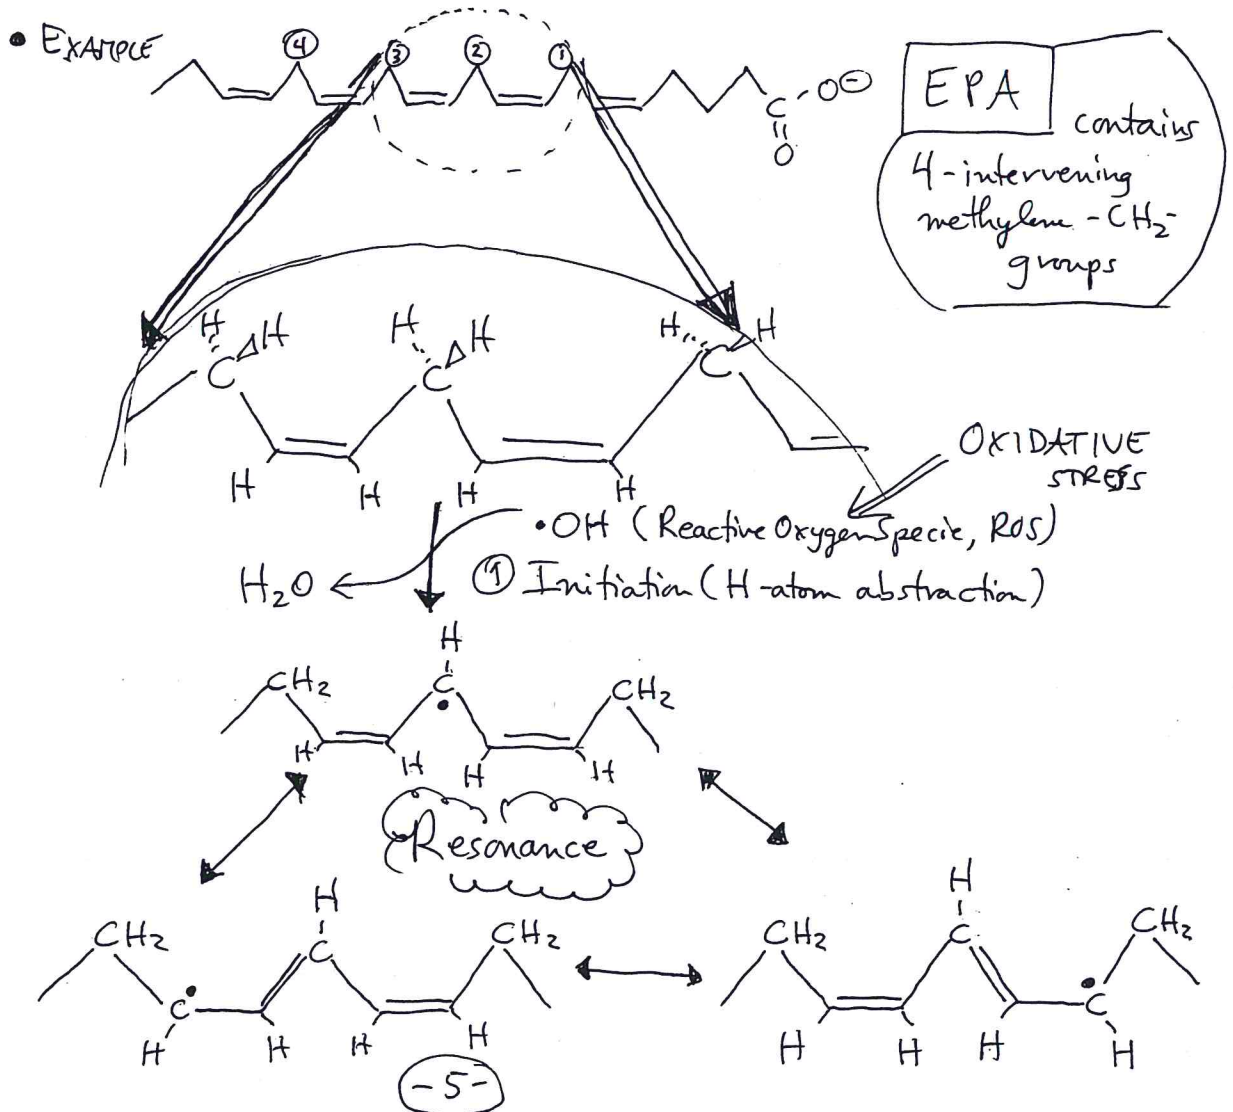 • EXAMPLE
④ ③ ② ①
C O⊖
O
EPA
contains
4-intervening
methylene -CH₂-
groups
H H H H H H
C C C
H H H H
OXIDATIVE
STRESS
•OH (Reactive Oxygen Specie, ROS)
H₂O ① Initiation (H-atom abstraction)
H
CH₂ C• CH₂
H H H H
Resonance
H H
CH₂ C CH₂ CH₂ C CH₂
C• C•
H H H H H H H H
-5-